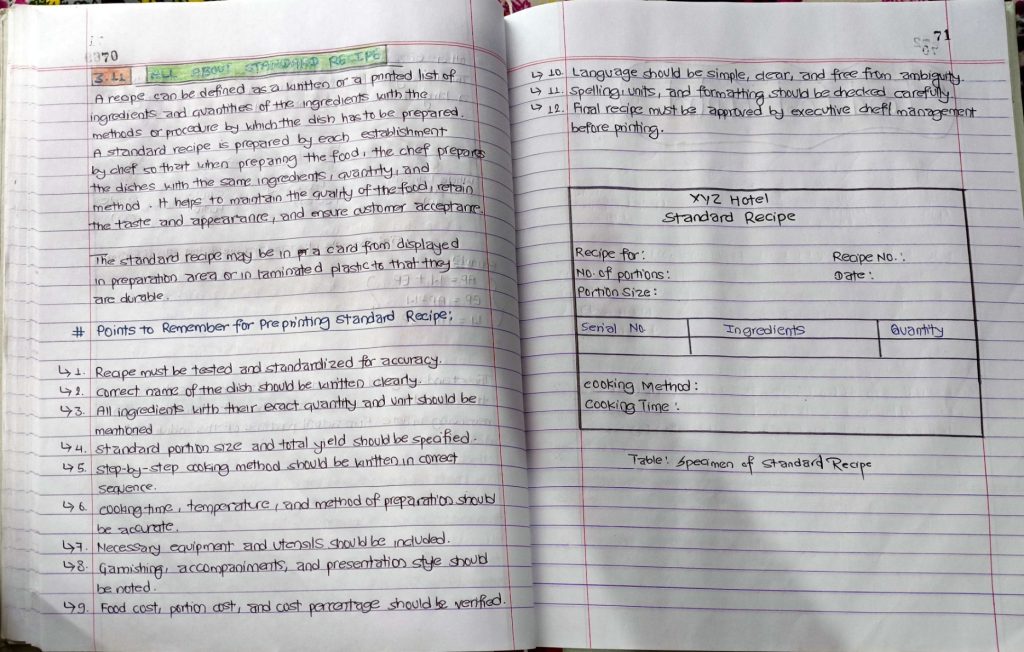 70
3.11 ALL ABOUT STANDARD RECIPE
A recipe can be defined as a written or a printed list of
ingredients and quantities of the ingredients with the
methods or procedure by which the dish has to be prepared.
A standard recipe is prepared by each establishment
by chef so that when preparing the food, the chef prepares
the dishes with the same ingredients, quantity, and
method. It helps to maintain the quality of the food, retain
the taste and appearance, and ensure customer acceptance.
The standard recipe may be in a card from displayed
in preparation area or in laminated plastic to that they
are durable.
# Points to Remember for Preprinting Standard Recipe;
↳ 1. Recipe must be tested and standardized for accuracy.
↳ 2. Correct name of the dish should be written clearly.
↳ 3. All ingredients with their exact quantity and unit should be
mentioned
↳ 4. Standard portion size and total yield should be specified.
↳ 5. Step-by-step cooking method should be written in correct
sequence.
↳ 6. Cooking-time, temperature, and method of preparation should
be accurate.
↳ 7. Necessary equipment and utensils should be included.
↳ 8. Garnishing, accompaniments, and presentation style should
be noted.
↳ 9. Food cost, portion cost, and cost percentage should be verified.
71
↳ 10. Language should be simple, clear, and free from ambiguity.
↳ 11. Spelling, units, and formatting should be checked carefully.
↳ 12. Final recipe must be approved by executive chef/ management
before printing.
XYZ Hotel
Standard Recipe
Recipe for: Recipe No.:
No. of portions: Date:
Portion Size:
Serial No Ingredients Quantity
Cooking Method:
Cooking Time:
Table: Specimen of Standard Recipe